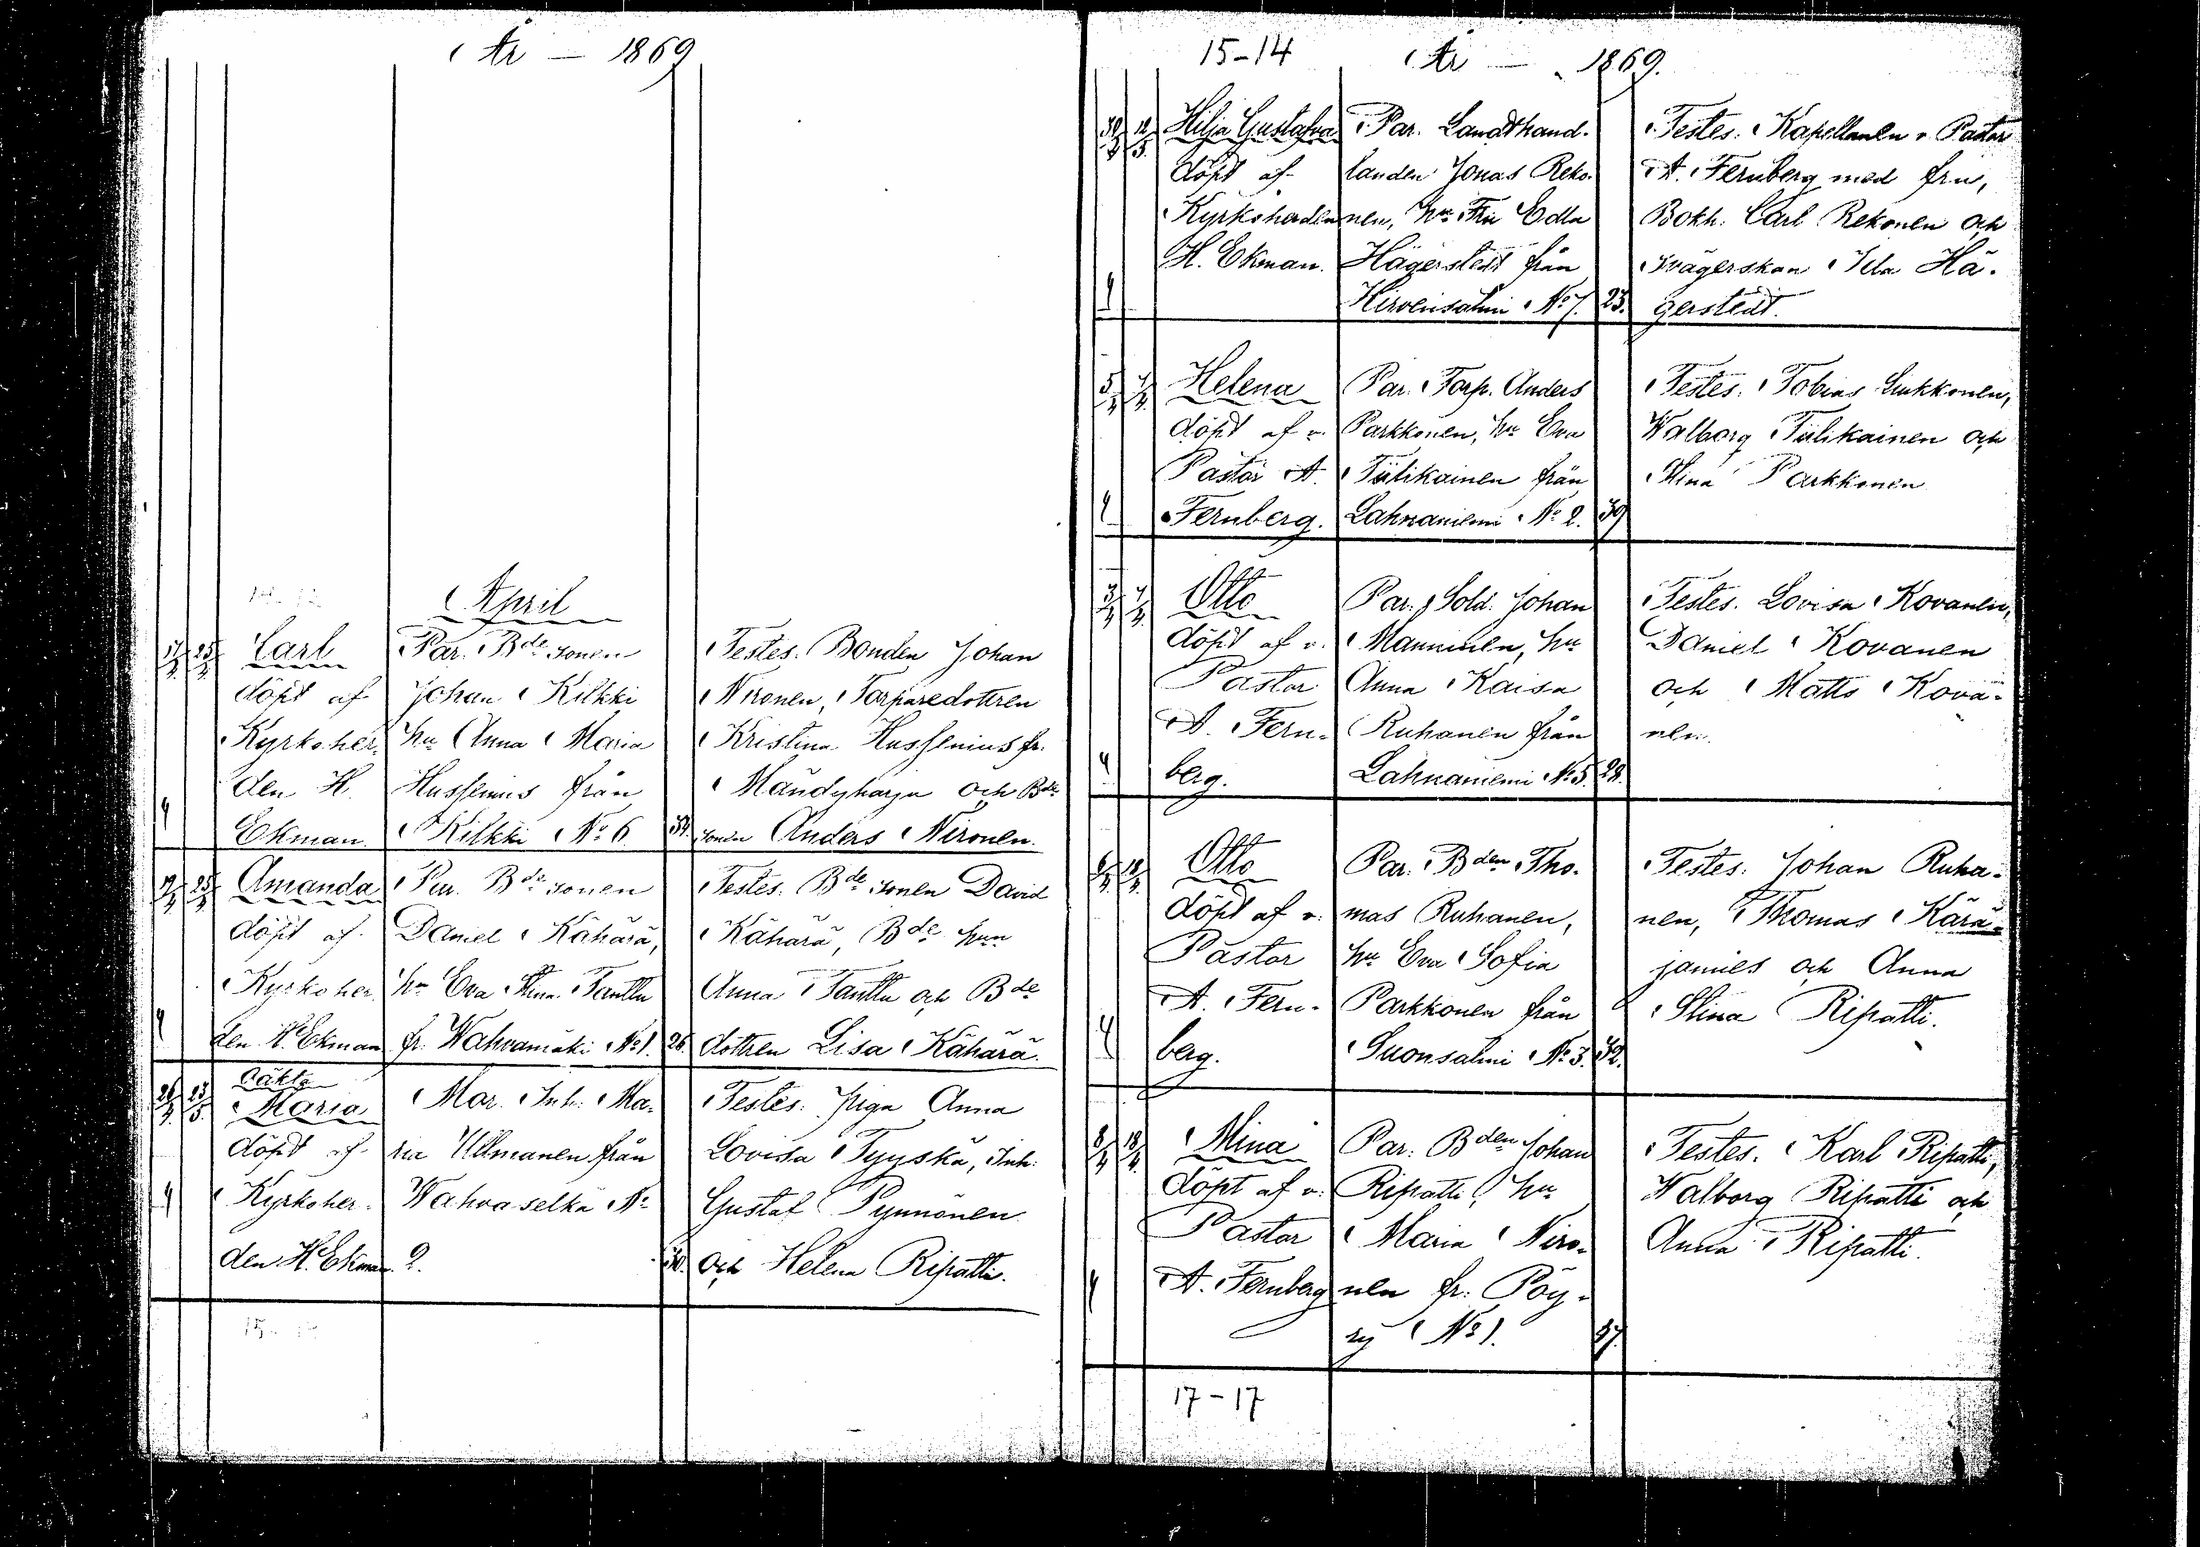 År — 1869
April
Carl
döpt af
Kyrkoher-
den H.
Ekman.
Par. Bde sonen
Johan Kilkki
hu Anna Maria
Hussenius från
Kilkki No 6
34.
Testes. Bonden Johan
Nironen, Torparedottren
Kristina Hussenius fr.
Mändyharju och Bde
sonen Anders Nironen.
Amanda
döpt af
Kyrkoher
den H. Ekman
Par. Bde sonen
Daniel Kähärä,
hu Eva Stina Tanttu
fr. Wahvamäki No 1.
26.
Testes. Bde sonen David
Kähärä, Bde hun
Anna Tanttu och Bde
dottren Lisa Kähärä.
oäkta
Maria
döpt af
Kyrkoher-
den H. Ekman
Mor. Inh. Ma-
ria Ullmanen från
Wahvaselkä No
2.
Testes. Piga Anna
Lovisa Tyyskä, Inh.
Gustaf Pynnönen
och Helena Ripatti.
15-14
År — 1869.
Hilja Gustafva
döpt af
Kyrkoherden
H. Ekman.
Par. Landthand-
landen Jonas Reko-
nen, hu Fru Edla
Hägerstedt från
Hirvensalmi No 7.
23.
Testes. Kapellanen v. Pastor
A. Fernberg med fru,
Bokh. Carl Rekonen och
Svägerskan Ida Hä-
gerstedt.
Helena
döpt af v.
Pastor A.
Fernberg.
Par. Torp. Anders
Parkkonen, hu Eva
Tulikainen från
Lahnaniemi No 2.
39
Testes. Tobias Lukkonen,
Walborg Tulikainen och
Stina Parkkonen
Otto
döpt af v.
Pastor
A. Fern-
berg.
Par. Sold. Johan
Manninen, hu
Anna Kaisa
Ruhanen från
Lahnaniemi No 5.
28.
Testes. Lovisa Kovanen,
Daniel Kovanen
och Matts Kova-
nen.
Otto
döpt af v.
Pastor
A. Fern-
berg.
Par. Bden Tho-
mas Ruhanen,
hu Eva Sofia
Parkkonen från
Suonsalmi No 3.
32.
Testes. Johan Ruha-
nen, Thomas Kärä-
jämies och Anna
Stina Ripatti.
Mina
döpt af v.
Pastor
A. Fernberg
Par. Bden Johan
Ripatti, hu
Maria Niro-
nen fr. Pöy-
ry No 1.
37.
Testes. Karl Ripatti,
Walborg Ripatti och
Anna Ripatti.
17-17